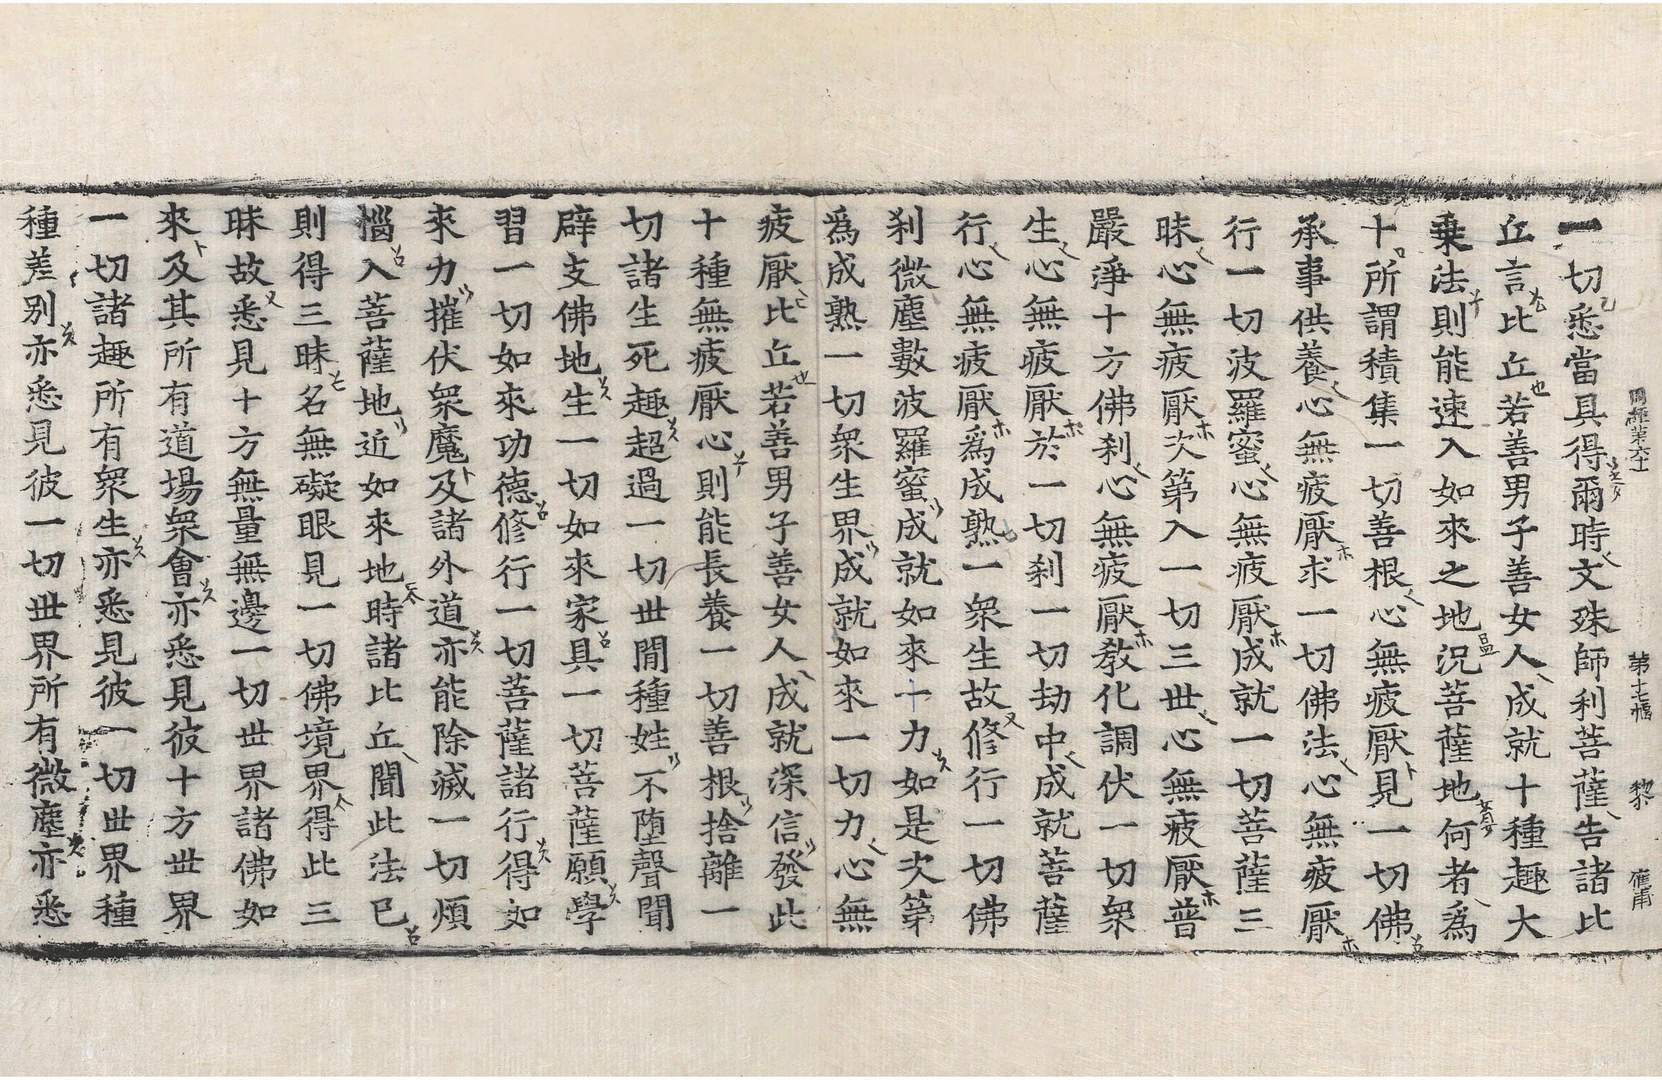 第十七幅
一切悉當具得爾時文殊師利菩薩告諸比
丘言比丘若善男子善女人成就十種趣大
乗法則能速入如來之地況菩薩地何者為
十所謂積集一切善根心無疲厭見一切佛
承事供養心無疲厭求一切佛法心無疲厭
行一切波羅蜜心無疲厭成就一切菩薩三
昧心無疲厭次第入一切三世心無疲厭普
嚴淨十方佛刹心無疲厭教化調伏一切衆
生心無疲厭於一切刹一切劫中成就菩薩
行心無疲厭為成熟一衆生故修行一切佛
刹微塵數波羅蜜成就如來十力如是次第
為成熟一切衆生界成就如來一切力心無
疲厭比丘若善男子善女人成就深信發此
十種無疲厭心則能長養一切善根捨離一
切諸生死趣超過一切世間種姓不墮聲聞
辟支佛地生一切如來家具一切菩薩願學
習一切如來功德修行一切菩薩諸行得如
來力摧伏衆魔及諸外道亦能除滅一切煩
惱入菩薩地近如來地時諸比丘聞此法已
則得三昧名無礙眼見一切佛境界得此三
昧故悉見十方無量無邊一切世界諸佛如
來及其所有道場衆會亦悉見彼十方世界
一切諸趣所有衆生亦悉見彼一切世界種
種差別亦悉見彼一切世界所有微塵亦悉